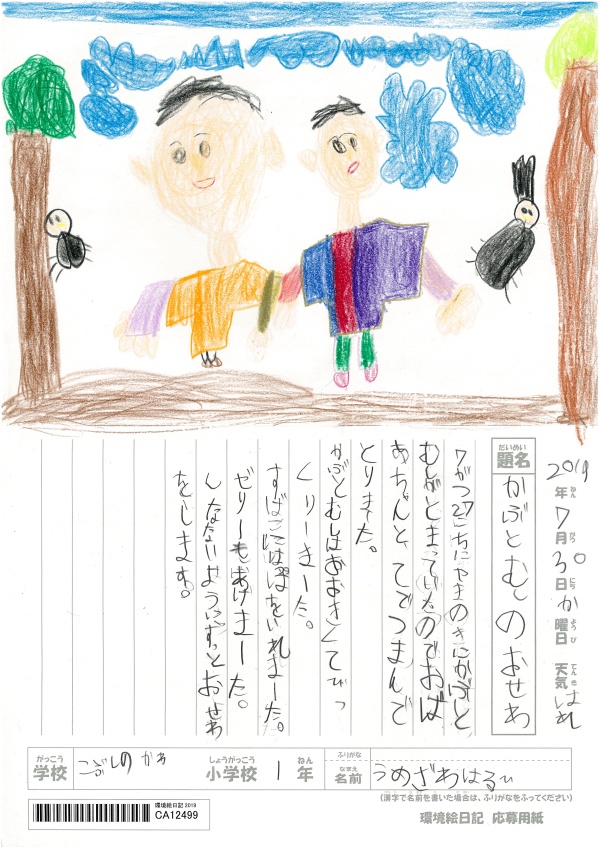 2019年7月30日か曜日 天気はれ
ねん がつ にち ようび てんき
だいめい
題名 かぶとむしのおせわ
7がつ27にちにやまのきにかぶと
むしがとまっていたのでおば
あちゃんと、てでつまんで
とりました。
かぶとむしはおおきくてびっ
くりしました。
すばこにははっぱをいれました。
ゼリーもあげました。
しなないようにずっとおせわ
をします。
がっこう しょうがっこう ねん ふりがな なまえ
学校 こぶしのかわ 小学校 1年 名前 うめざわはるい
(漢字で名前を書いた場合は、ふりがなをふってください)
環境絵日記 2019
CA12499
環境絵日記 応募用紙